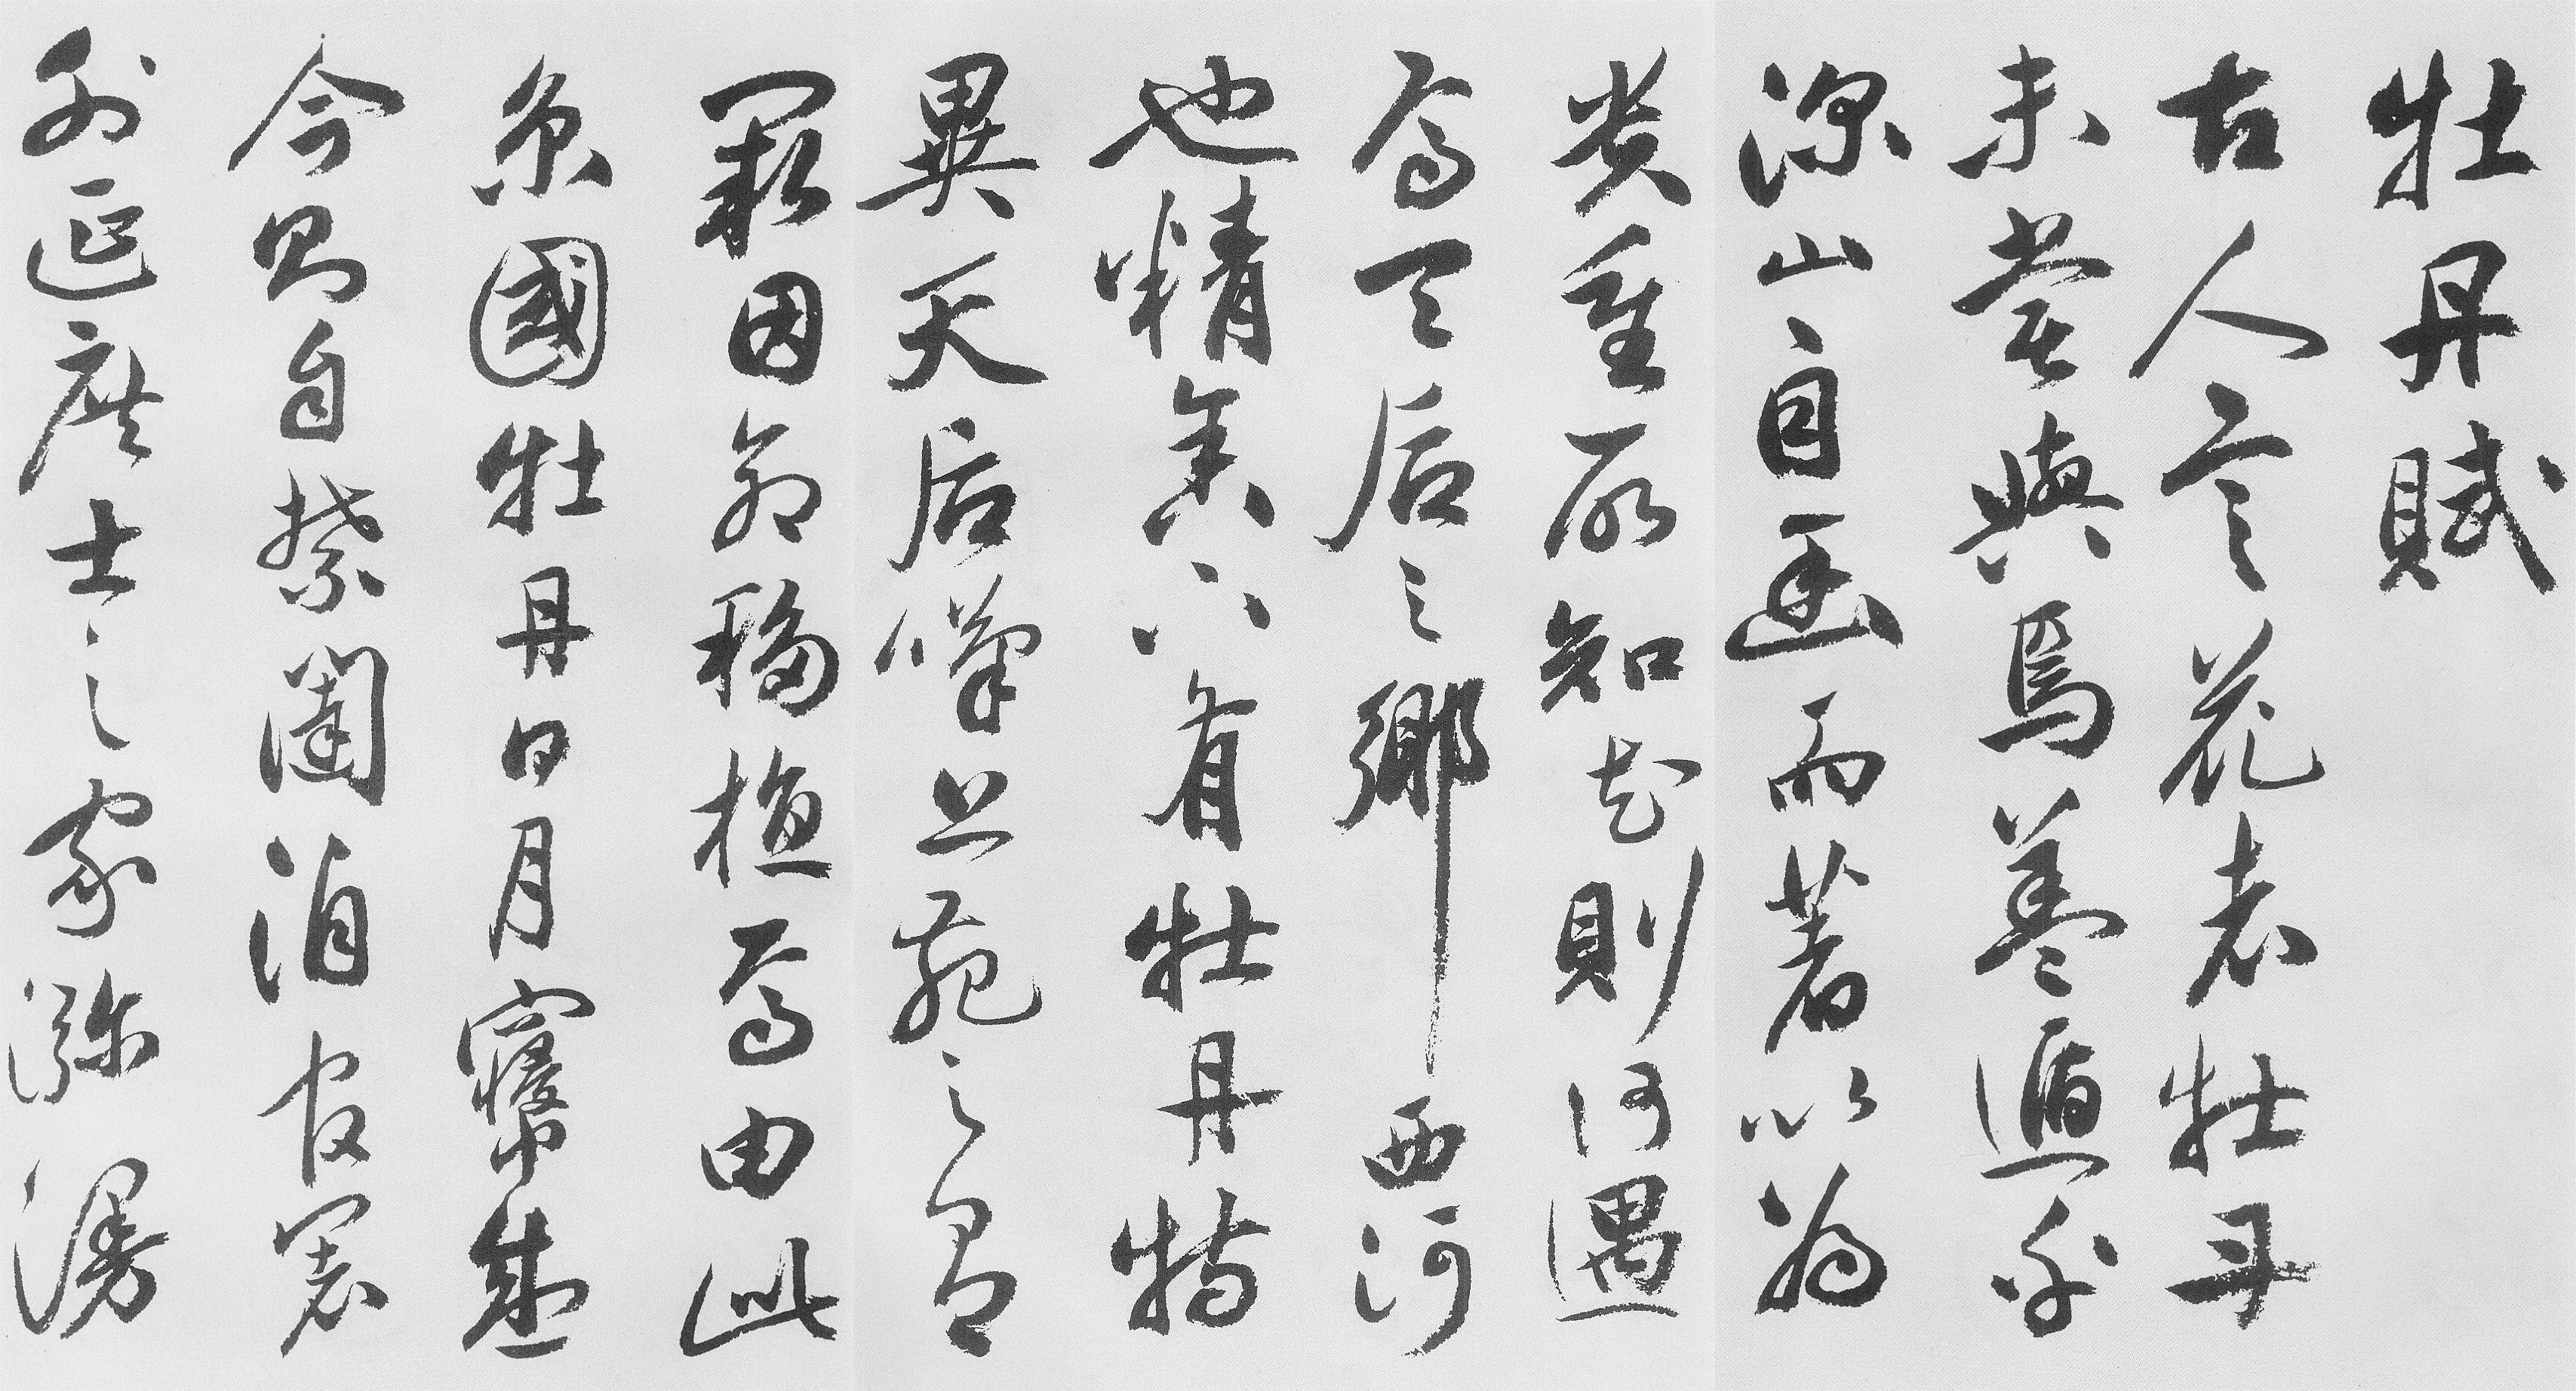 牡丹賦
古人言花者牡丹
未嘗與焉蓋遁乎
深山自幽而著以為
貴重所知花則何遇
焉天后之鄉西河
也精舍下有牡丹特
異天后嘆上苑之有
闕因命移植焉由此
京國牡丹日月寖盛
今則自禁闥洎官署
外延庶士之家瀰漫